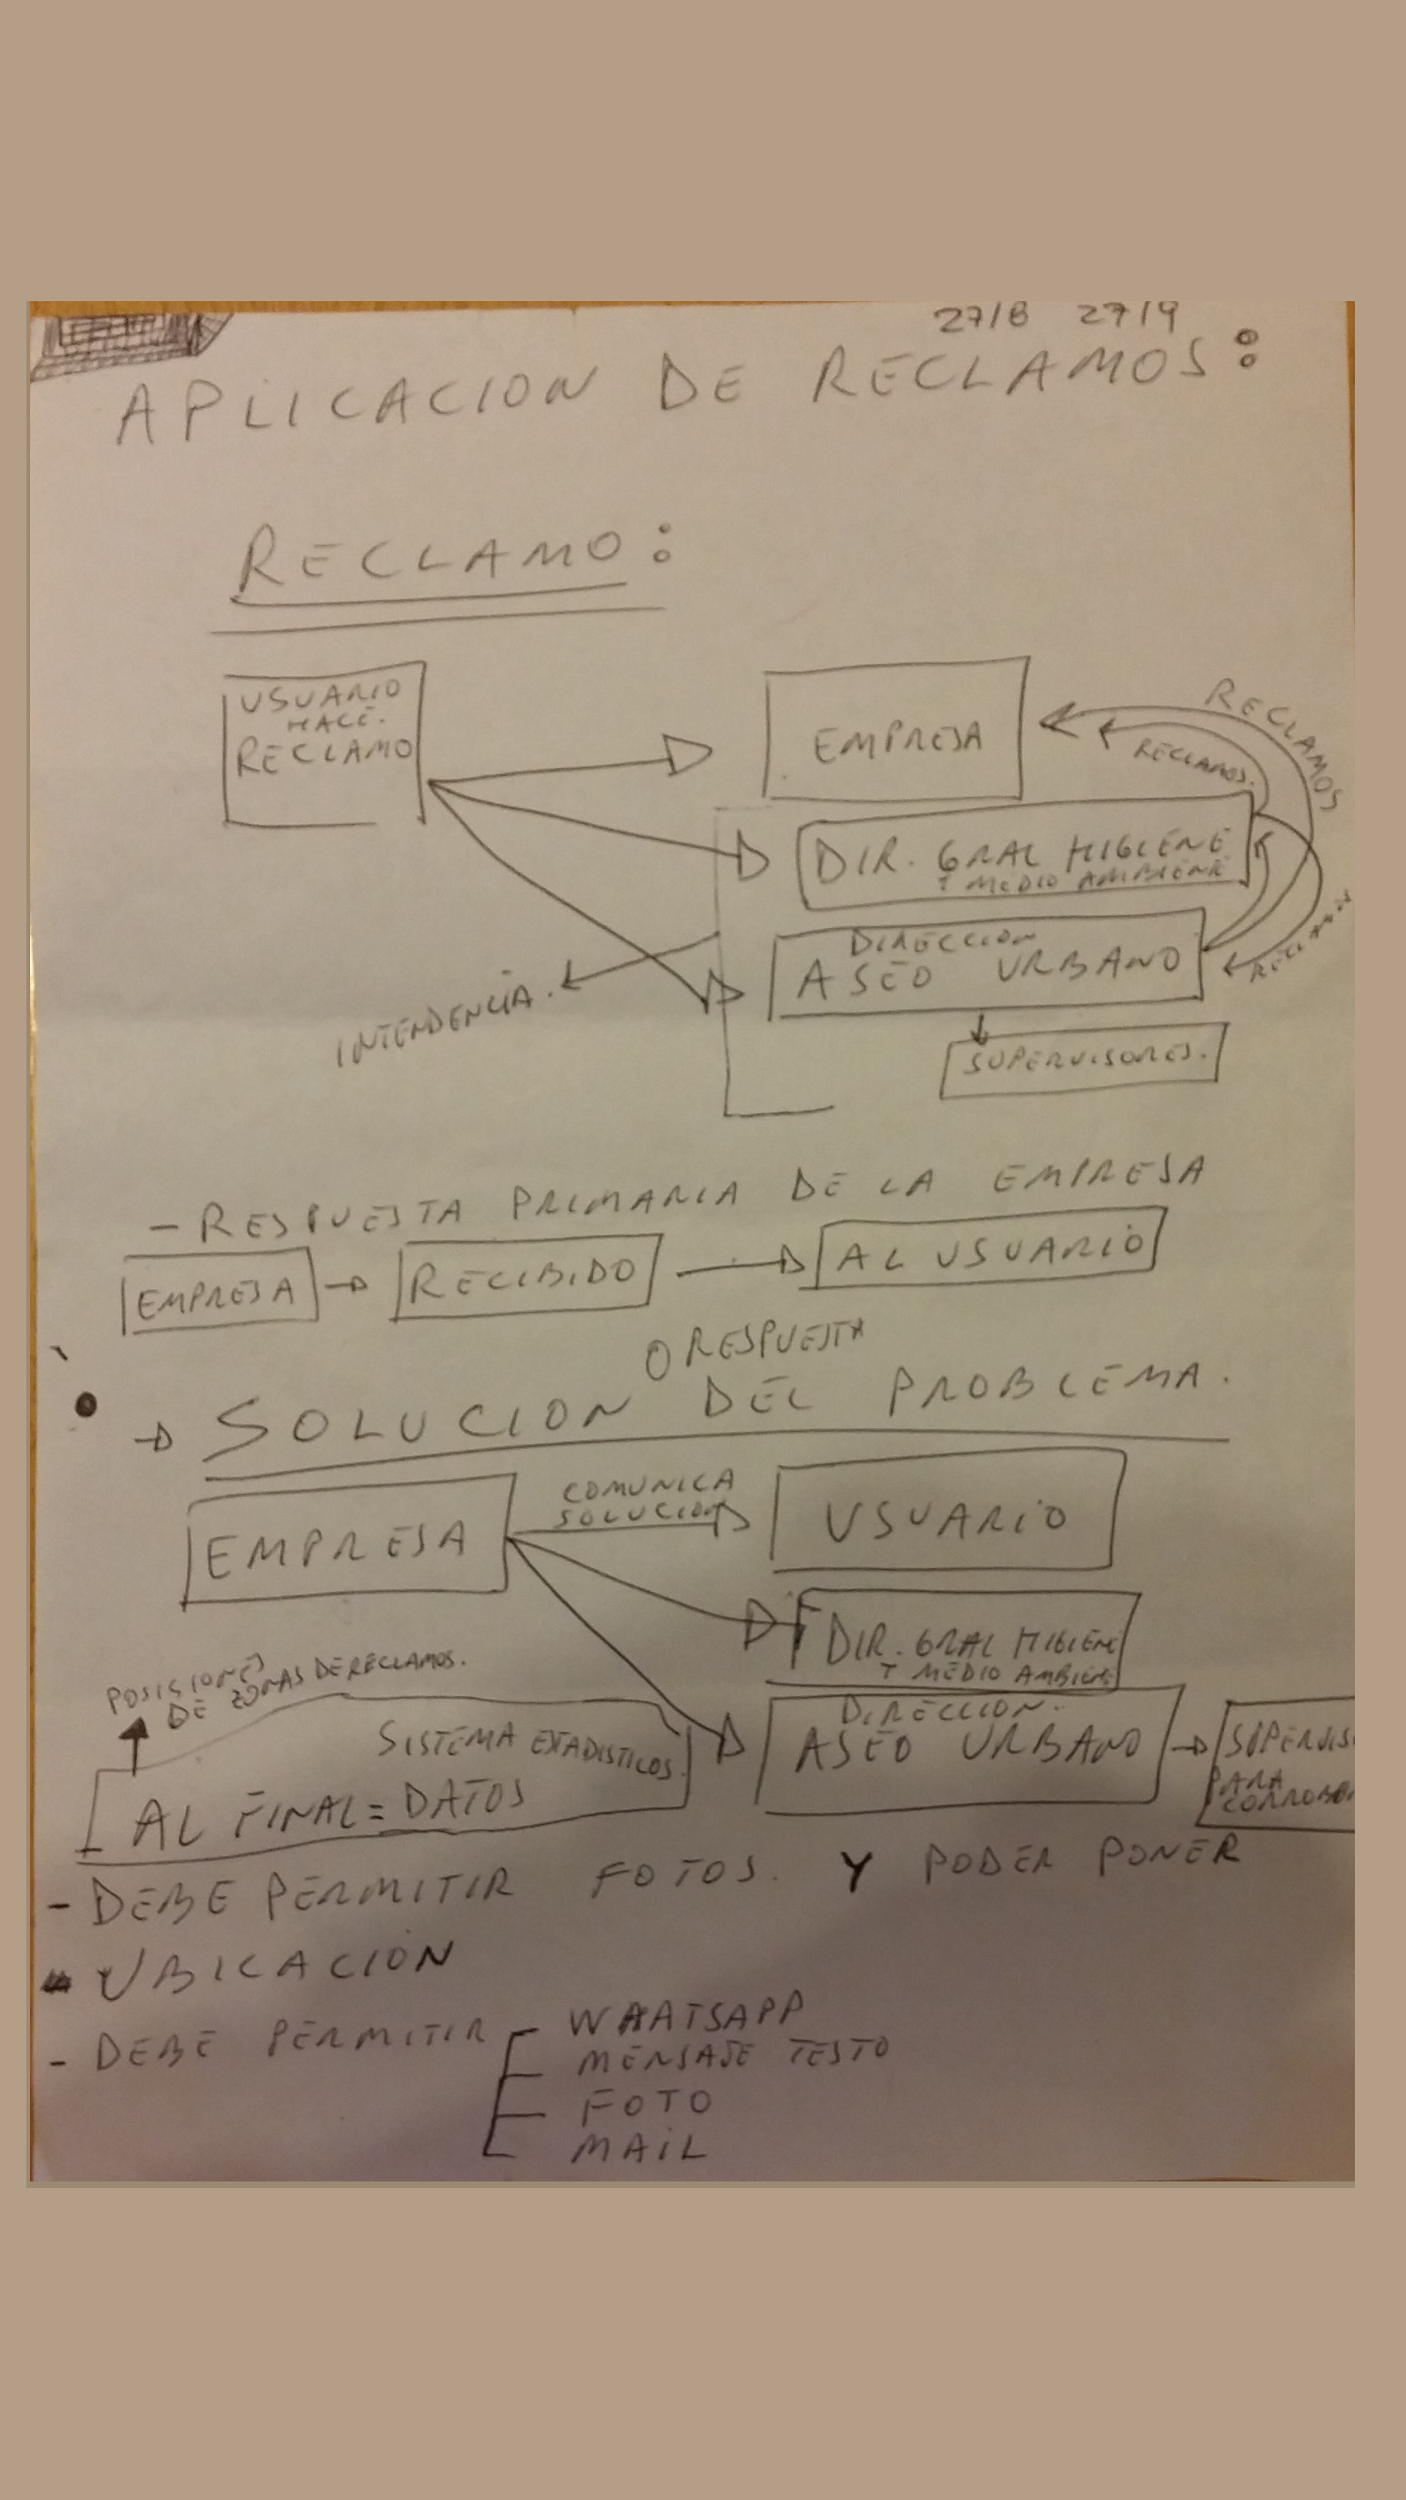 27/8 27/9
APLICACION DE RECLAMOS:
RECLAMO:
USUARIO
HACE.
RECLAMO
EMPRESA
RECLAMOS
RECLAMOS.
DIR. GRAL HIGIENE
Y MEDIO AMBIENE
DIRECCION
ASEO URBANO
INTENDENCIA.
SUPERVISORES.
- RESPUESTA PRIMARIA DE LA EMPRESA
EMPRESA
RECIBIDO
AL USUARIO
O RESPUESTA
SOLUCION DEL PROBLEMA.
EMPRESA
COMUNICA
SOLUCION
USUARIO
DIR. GRAL HIGIENE
Y MEDIO AMBIENE
DIRECCION.
ASEO URBANO
SUPERVIS
PARA
POSICIONES
DE ZONAS DE RECLAMOS.
SISTEMA EXTADISTICOS.
AL FINAL = DATOS
- DEBE PERMITIR FOTOS. Y PODER PONER
- UBICACION
- DEBE PERMITIR
WHATSAPP
MENSAJE TESTO
FOTO
MAIL